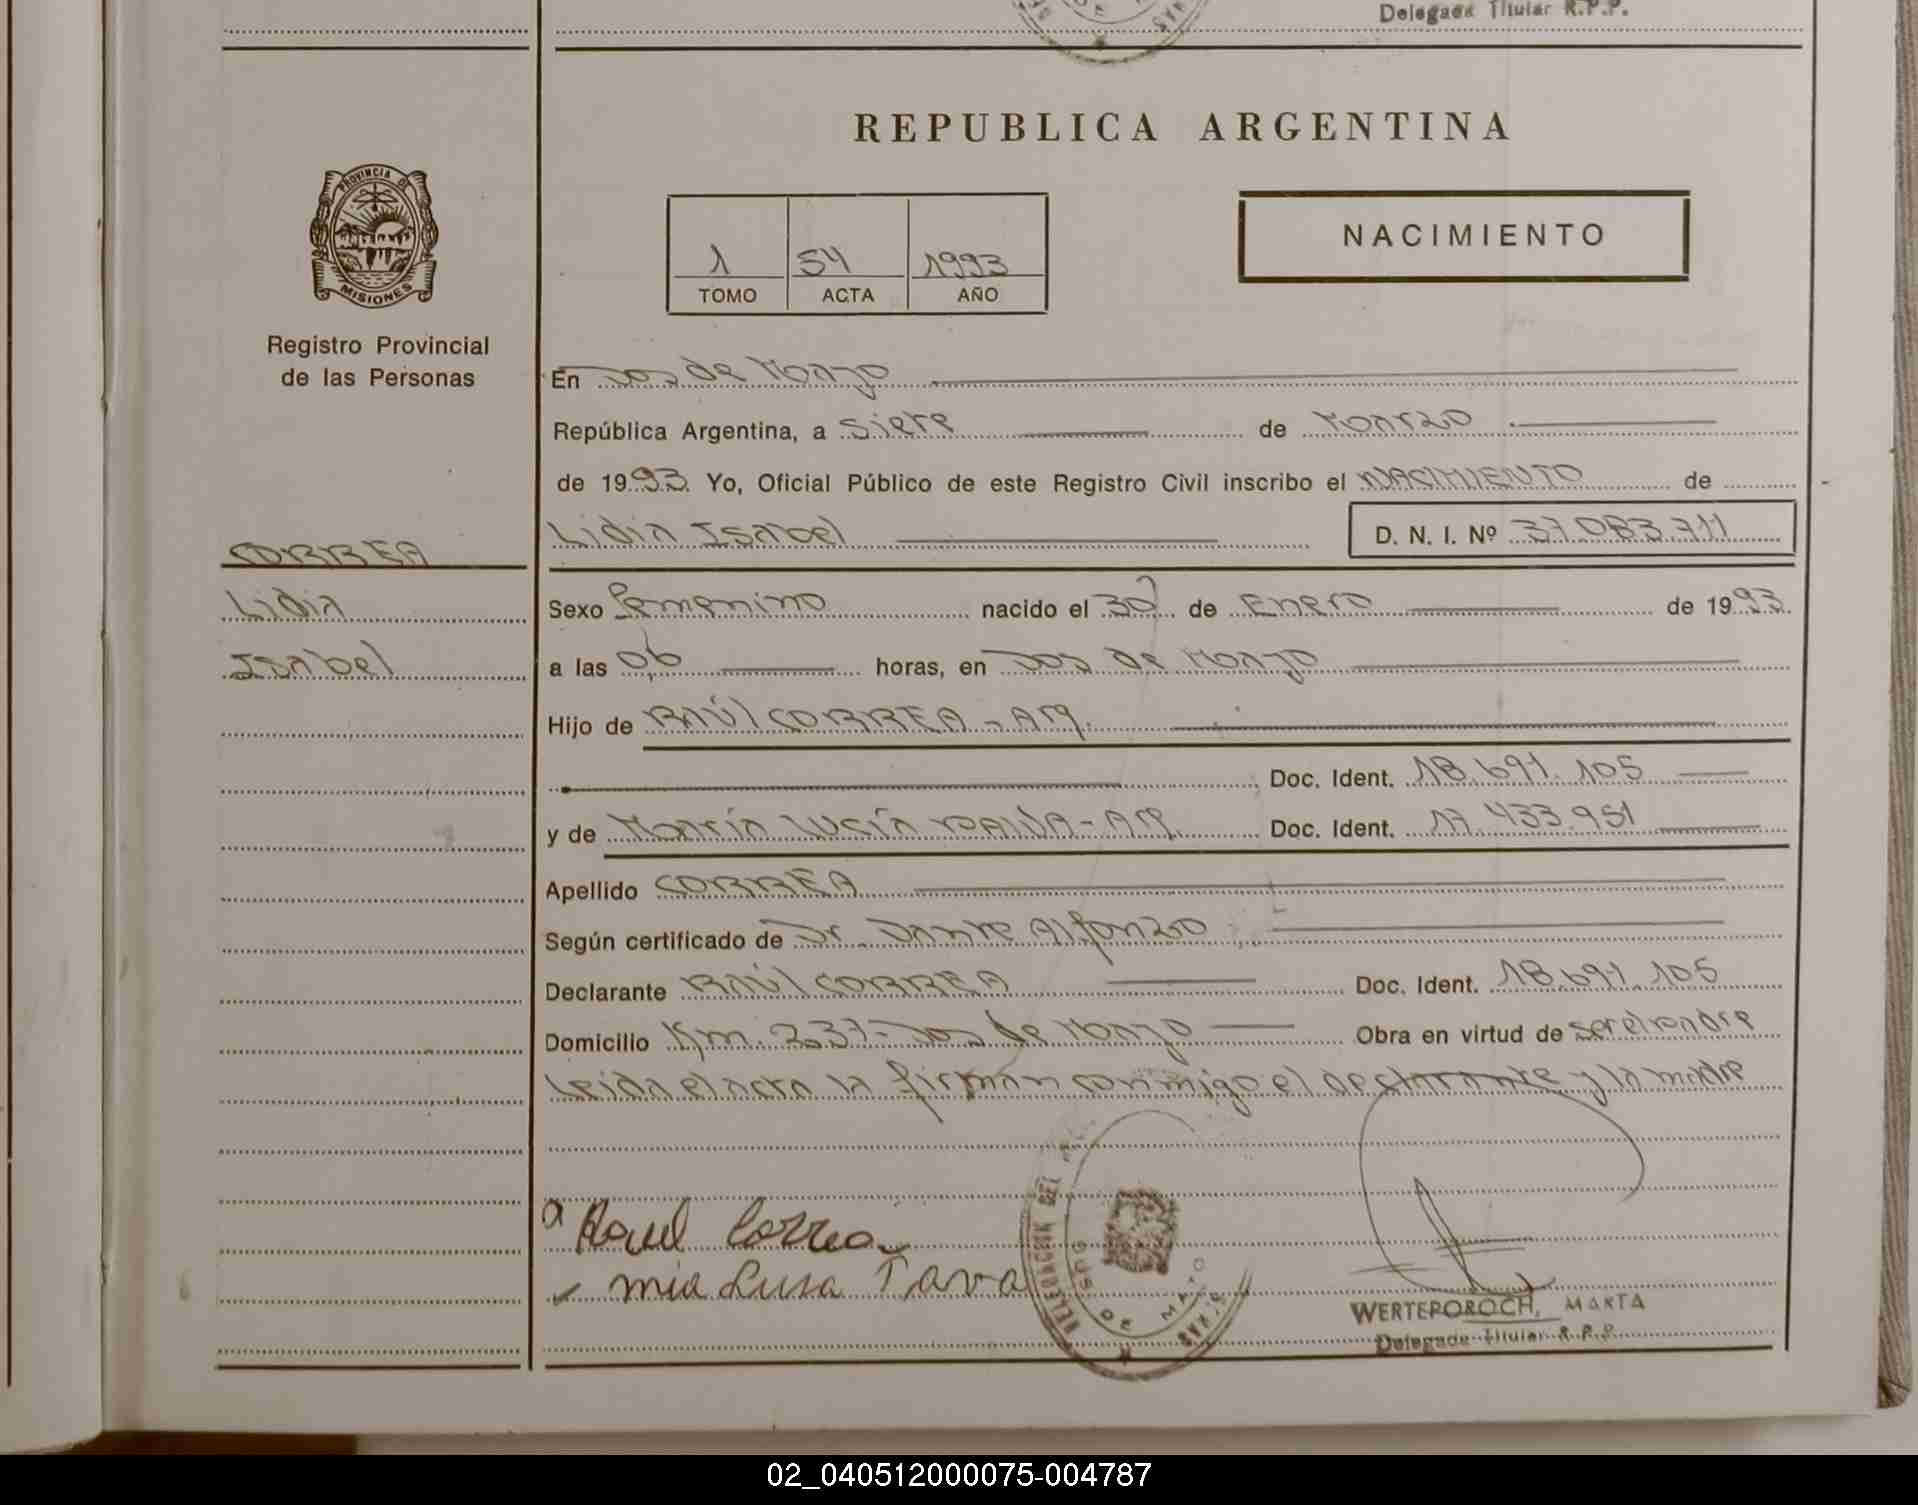 Delegada Titular R.P.P.
REPUBLICA ARGENTINA
PROVINCIA DE
MISIONES
Registro Provincial
de las Personas
1 54 1993
TOMO ACTA AÑO
NACIMIENTO
En Dos de Mayo
República Argentina, a siete de Marzo
de 1993. Yo, Oficial Público de este Registro Civil inscribo el NACIMIENTO de
Lidia Isabel D. N. I. Nº 37.083.711
CORREA
Lidia
Isabel
Sexo femenino nacido el 30 de Enero de 1993.
a las 06 horas, en Dos de Mayo
Hijo de RAÚl CORREA - Arg.
Doc. Ident. 18.691.105
y de María Lucía - Arg. Doc. Ident. 17.433.951
Apellido CORREA
Según certificado de Dr. Dante Alfonzo
Declarante RAÚl CORREA Doc. Ident. 18.691.105
Domicilio Km. 237 - Dos de Mayo Obra en virtud de ser el padre
Leida el acta la firman conmigo el declarante y la madre
Raul Correa
DELEGACION DEL
DE MAYO
WERTEPOROCH, MARTA
Delegada Titular R.P.P.
02_040512000075-004787